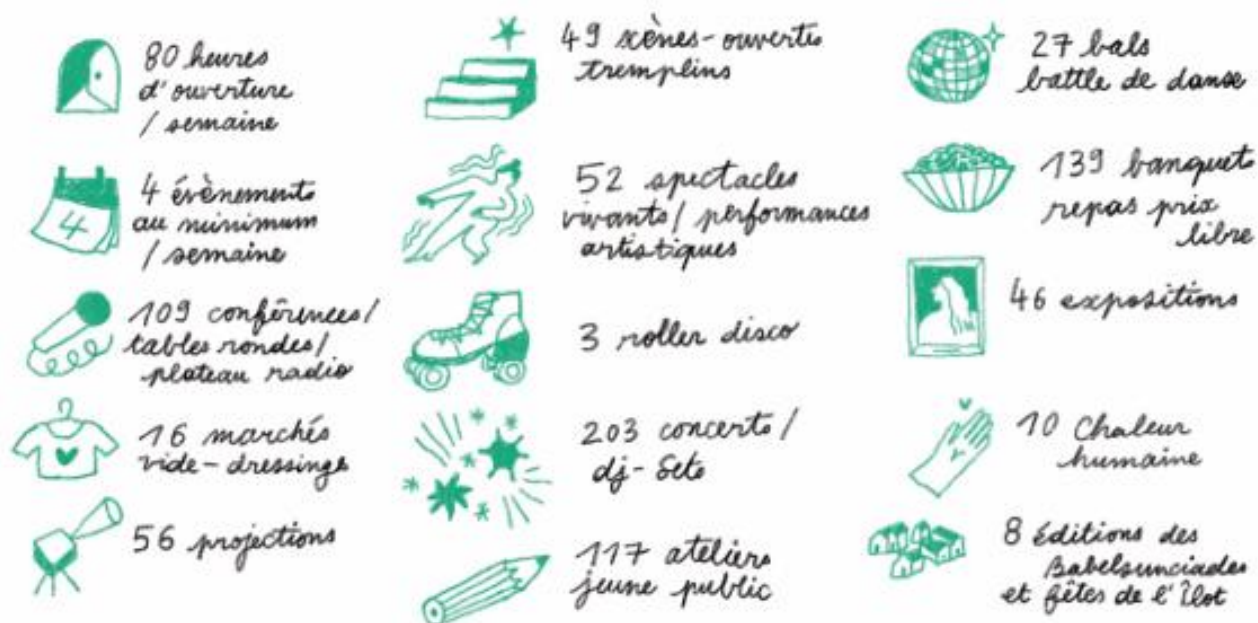 80 heures
d'ouverture
/ semaine
4 évènements
au minimum
/ semaine
4
109 conférences/
tables rondes/
plateau radio
16 marchés
vide-dressings
56 projections
49 scènes-ouvertes
tremplins
52 spectacles
vivants/performances
artistiques
3 roller disco
203 concerts/
dj-sets
117 ateliers
jeune public
27 bals
battle de danse
139 banquets
repas prix
libre
46 expositions
10 Chaleur
humaine
8 éditions des
Babelsunciades
et fêtes de l'îlot